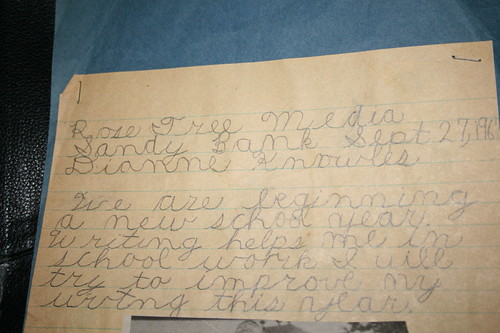 Rose Tree Media
Sandy Bank Sept. 27, 196
Dianne Knowles
We are beginning
a new school year.
Writing helps me in
school work I will
try to improve my
wrtng this year.